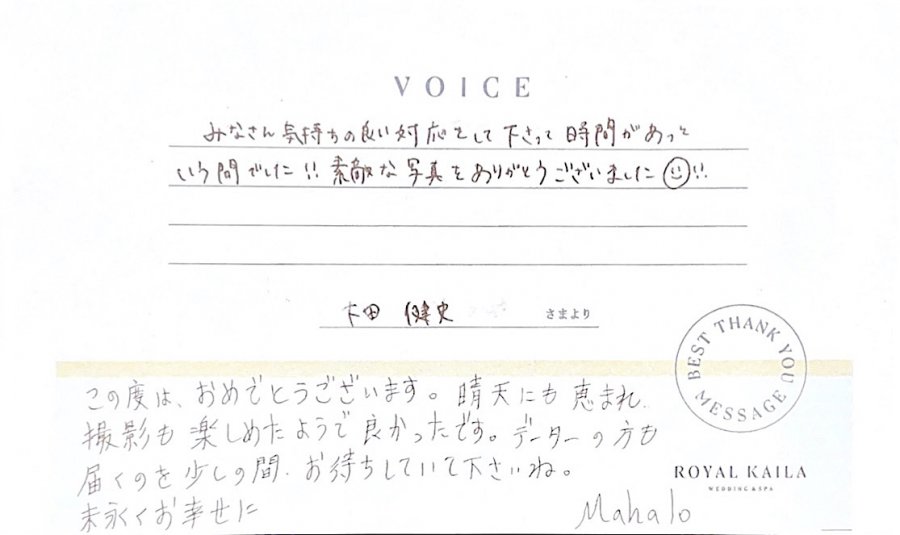 VOICE
みなさん気持ちの良い対応をして下さって時間があっと
いう間でした!!素敵な写真をありがとうございました!!
下田 健史 さまより
BEST THANK YOU MESSAGE
この度は、おめでとうございます。晴天にも恵まれ、
撮影も楽しめたようで良かったです。データーの方も
届くのを少しの間、お待ちしていて下さいね。
末永くお幸せに
Mahalo
ROYAL KAILA
WEDDING & SPA